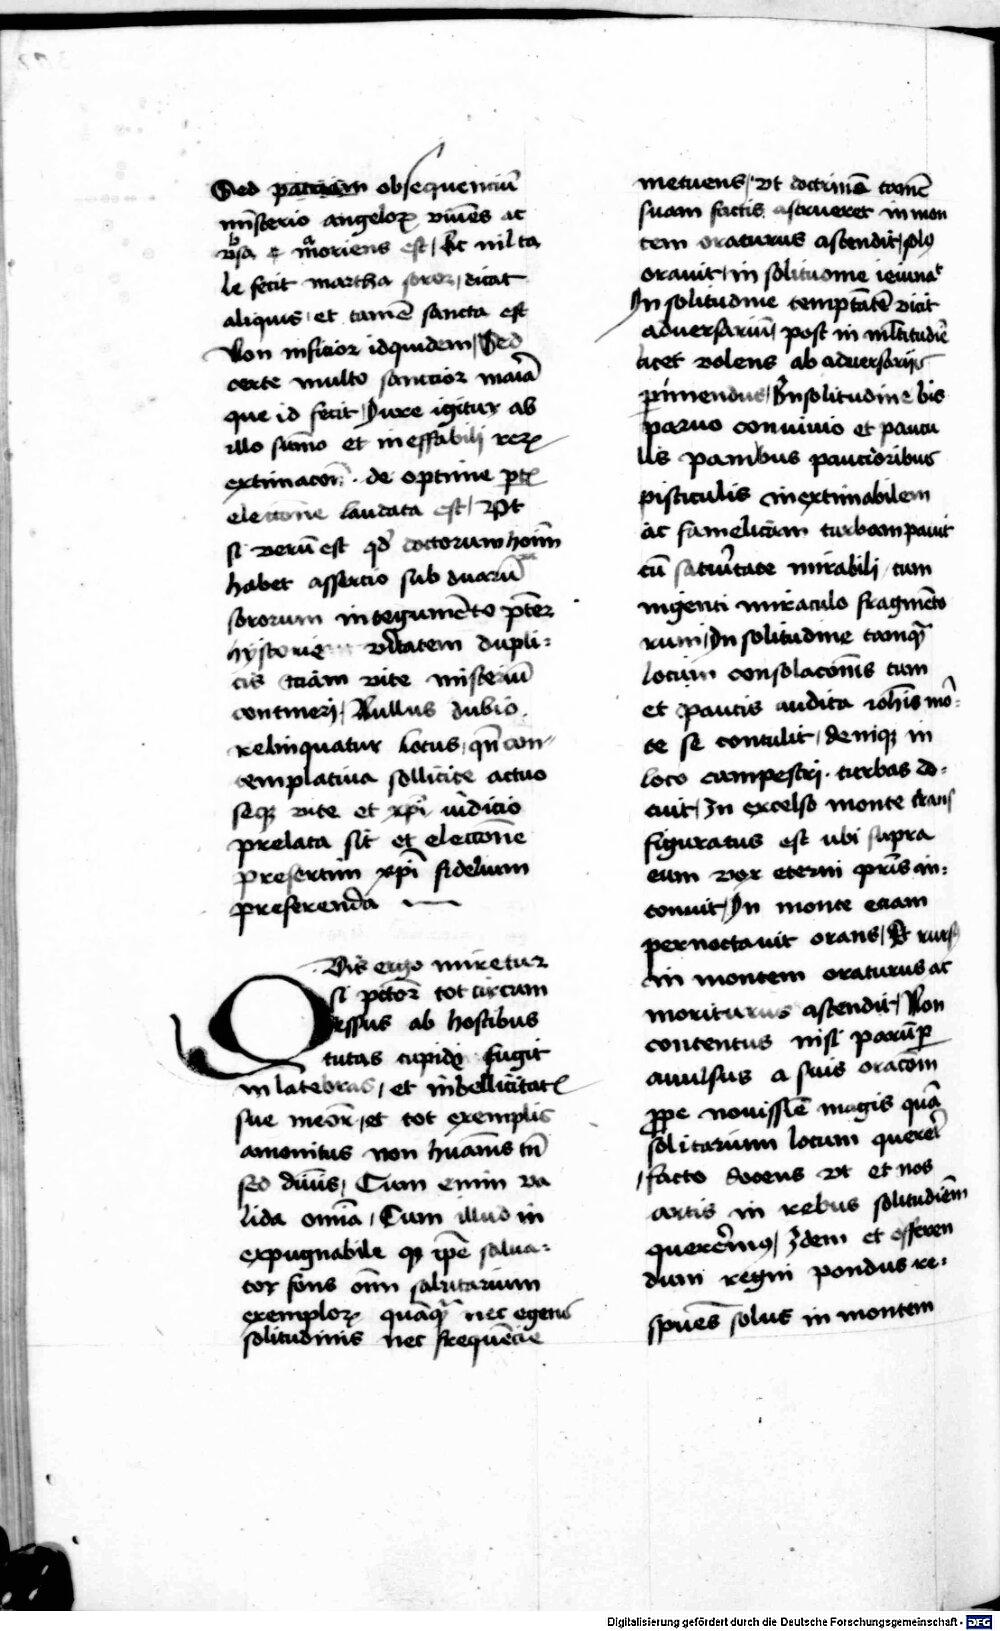 Sed patriam obsequenciũ
mĩsterio angelorꝝ viuẽs ac
v̾sa ⁊ moriens est / Et nil ta
le fecit martha soror / dicat
aliquis / et tamẽ sancta est
Non inficior idquidem / Sed
certe multo sanctior maria
que id fecit / Jure igitur ab
illo sũmo et ineffabili rerꝝ
extimatorẽ · de optime ptꝭ
eleccione laudata est / Vt
si verũ est qđ doctorum hoĩm
habet assercio sub duarũ
sororum integumẽto pter
hystorie veritatem dupli-
cis eciam vite misteriũ
contineri / Nullus dubio
relinquatur locus / qñ con-
templatiua sollicite actuo
seqꝫ vite et xp̃i iudicio
prelata sit et eleccõne
presertim xp̃i fidelium
preferenda
Quis ergo miretur
si pctõr tot circum
essus ab hostibus
tutas cupidꝰ fugit
in latebras / et inbellicitatꝭ
sue memor / et tot exemplis
amonitus non huãnis tñ
sed diuĩs / Cum enim va
lida omĩa / Cum illud in
expugnabile qꝫ ip̃e salua-
tor fons oĩm salutarium
exemplorꝝ quãqꝫ nec egens
solitudinis nec frequẽcie
metuens / Vt doctrinã tamẽ
suam factis astrueret in mon
tem oraturus ascendit / solꝰ
orauit / in solitudine ieiunat
In solitudine temptãtẽ vicit
aduersariũ / post in ml̃titudiẽ
licet volens ab aduersarijs
perimendus / In solitudine bis
paruo conuiuio et paucu
lis panibus paucioribus
pisciculis inextimabilem
ac famelicam turbam pauit
cũ saturitate mirabili / tum
ingenti miraculo fragmẽto
rum / In solitudine tamqꝫ
locum consolacõnis tum
et paucis audita ioh̃is mor-
te se contulit / deniqꝫ in
loco campestri · turbas do-
cuit / In excelso monte trans
figuratus est vbi supra
eum vox eterni pr̃is in-
tonuit / In monte eciam
pernoctauit orans / Et rursꝰ
in montem oraturus ac
moriturus ascendit / Non
contentus nisi parũp
auulsus a suis oracõm
ꝓpe nouissiẽ magis quã
solitarium locum quereret
facto docens vt et nos
artis in rebus solitudiẽm
queremꝰ / Idem et offeren
dum regni pondus re-
spuẽs solus in montem
Digitalisierung gefördert durch die Deutsche Forschungsgemeinschaft - DFG